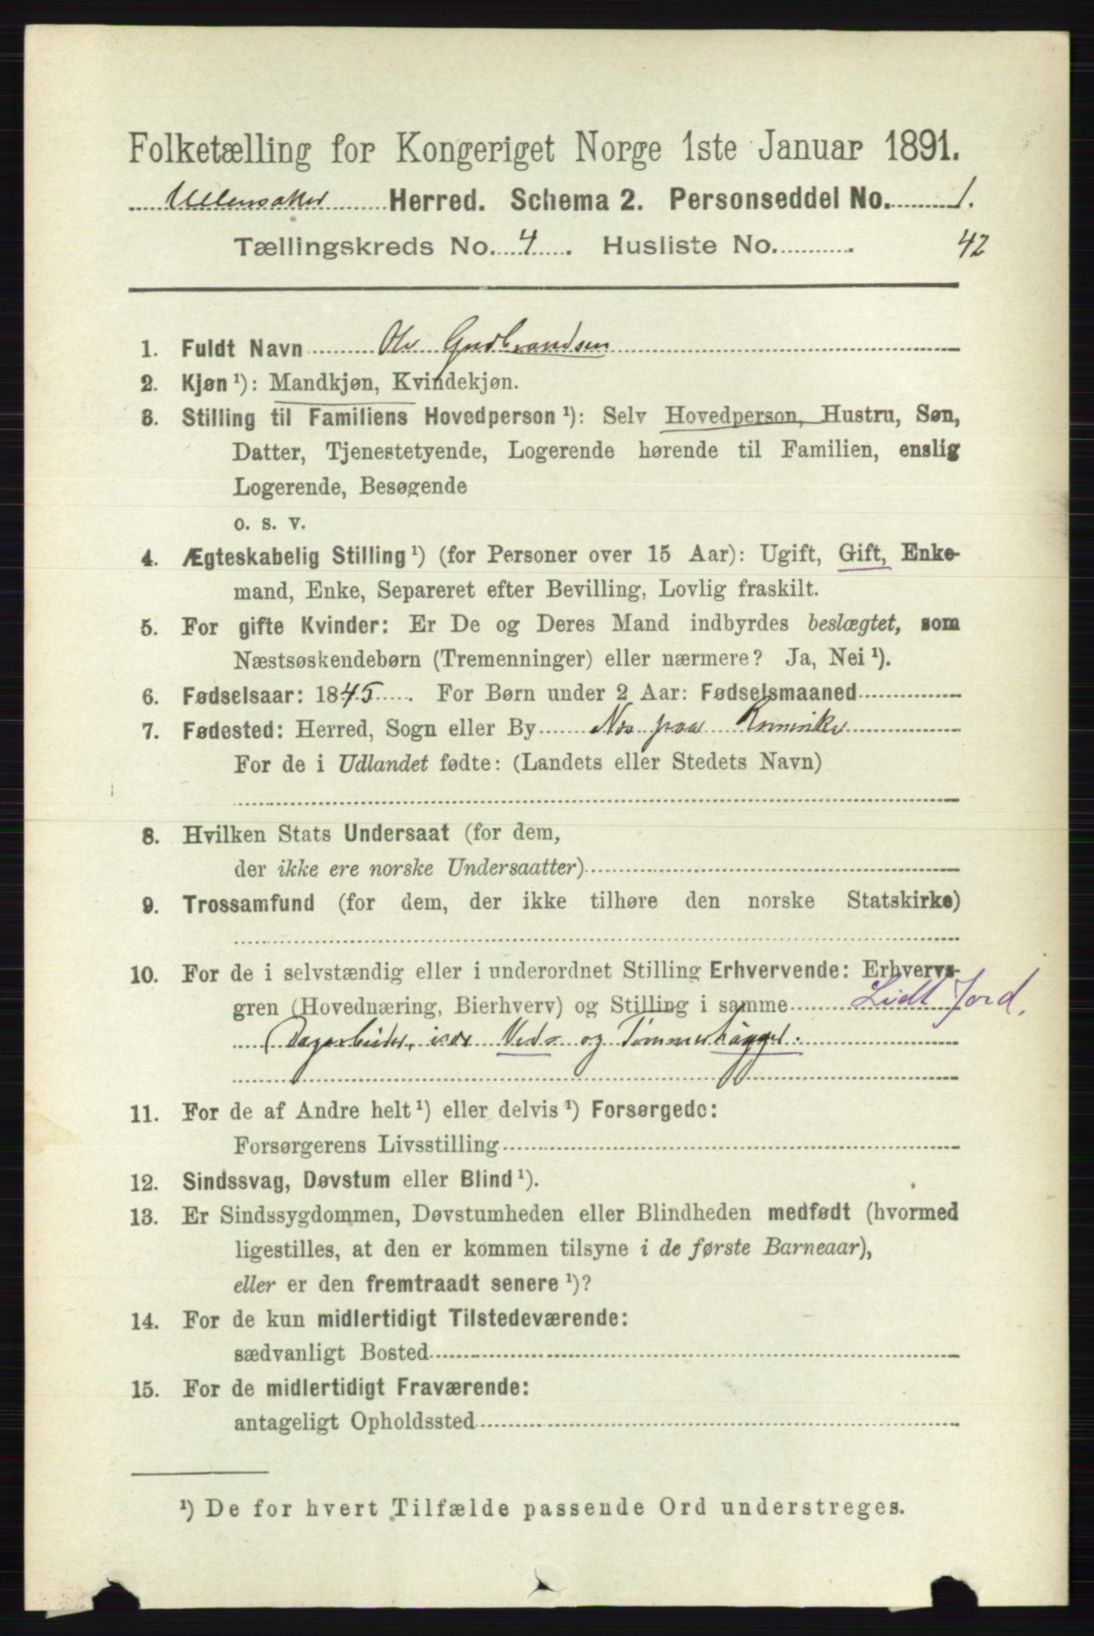 Folketælling for Kongeriget Norge 1ste Januar 1891.
Ullensaker Herred. Schema 2. Personseddel No. 1.
Tællingskreds No. 4. Husliste No. . 42
1. Fuldt Navn Ole Gudbrandsen
2. Kjøn ¹): Mandkjøn, Kvindekjøn.
3. Stilling til Familiens Hovedperson ¹): Selv Hovedperson, Hustru, Søn,
Datter, Tjenestetyende, Logerende hørende til Familien, enslig
Logerende, Besøgende
o. s. v.
4. Ægteskabelig Stilling ¹) (for Personer over 15 Aar): Ugift, Gift, Enke-
mand, Enke, Separeret efter Bevilling, Lovlig fraskilt.
5. For gifte Kvinder: Er De og Deres Mand indbyrdes beslægtet, som
Næstsøskendebørn (Tremenninger) eller nærmere? Ja, Nei ¹).
6. Fødselsaar: 1845. For Børn under 2 Aar: Fødselsmaaned
7. Fødested: Herred, Sogn eller By Nes paa Romerike
For de i Udlandet fødte: (Landets eller Stedets Navn)
8. Hvilken Stats Undersaat (for dem,
der ikke ere norske Undersaatter)
9. Trossamfund (for dem, der ikke tilhøre den norske Statskirke)
10. For de i selvstændig eller i underordnet Stilling Erhvervende: Erhvervs-
gren (Hovednæring, Bierhverv) og Stilling i samme Lidt Jord.
Dagarbeider, især Ved- og Tømmerhugger.
11. For de af Andre helt ¹) eller delvis ¹) Forsørgede:
Forsørgerens Livsstilling
12. Sindssvag, Døvstum eller Blind ¹).
13. Er Sindssygdommen, Døvstumheden eller Blindheden medfødt (hvormed
ligestilles, at den er kommen tilsyne i de første Barneaar),
eller er den fremtraadt senere ¹)?
14. For de kun midlertidigt Tilstedeværende:
sædvanligt Bosted
15. For de midlertidigt Fraværende:
antageligt Opholdssted
¹) De for hvert Tilfælde passende Ord understreges.